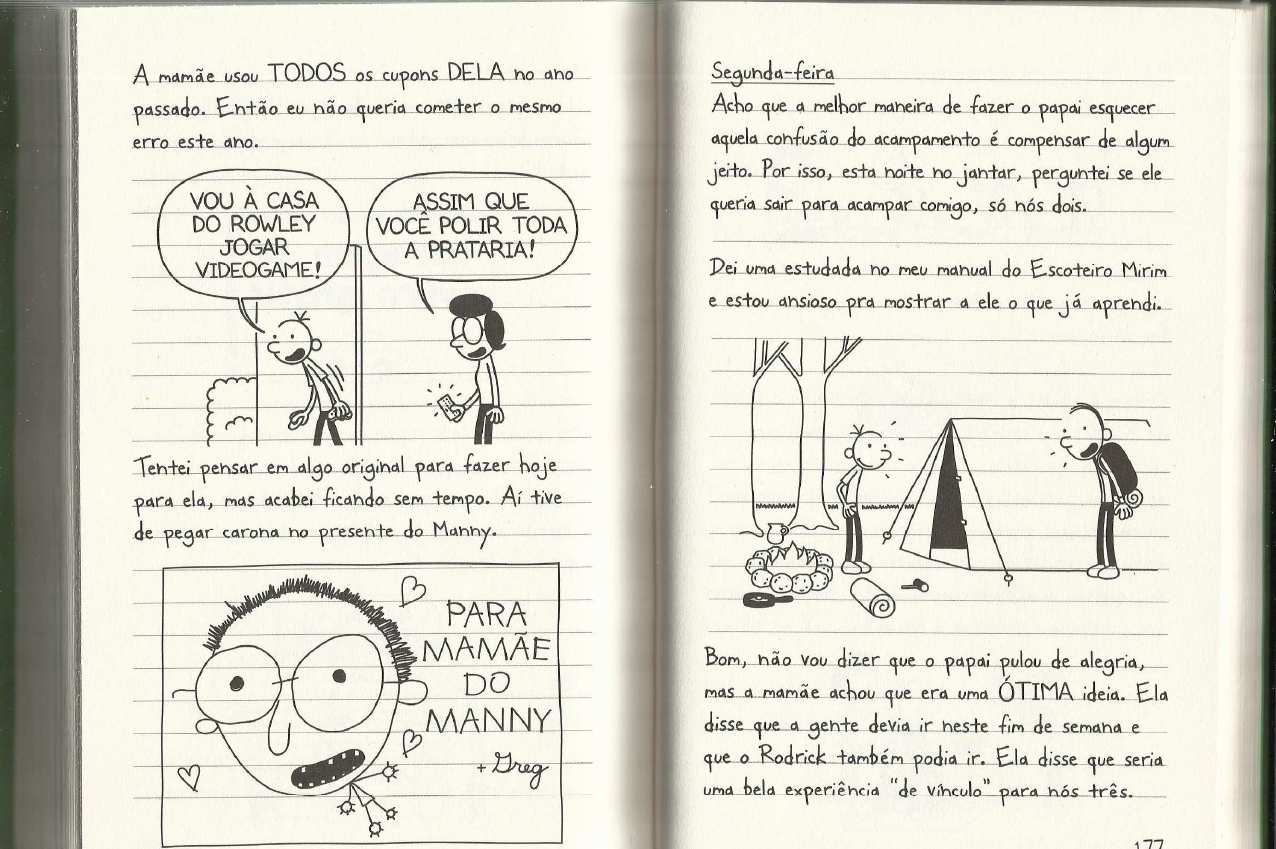 A mamãe usou TODOS os cupons DELA no ano
passado. Então eu não queria cometer o mesmo
erro este ano.
VOU À CASA
DO ROWLEY
JOGAR
VIDEOGAME!
ASSIM QUE
VOCÊ POLIR TODA
A PRATARIA!
Tentei pensar em algo original para fazer hoje
para ela, mas acabei ficando sem tempo. Aí tive
de pegar carona no presente do Manny.
PARA
MAMÃE
DO
MANNY
+ Greg
Segunda-feira
Acho que a melhor maneira de fazer o papai esquecer
aquela confusão do acampamento é compensar de algum
jeito. Por isso, esta noite no jantar, perguntei se ele
queria sair para acampar comigo, só nós dois.
Dei uma estudada no meu manual do Escoteiro Mirim
e estou ansioso pra mostrar a ele o que já aprendi.
Bom, não vou dizer que o papai pulou de alegria,
mas a mamãe achou que era uma ÓTIMA ideia. Ela
disse que a gente devia ir neste fim de semana e
que o Rodrick também podia ir. Ela disse que seria
uma bela experiência "de vínculo" para nós três.
177